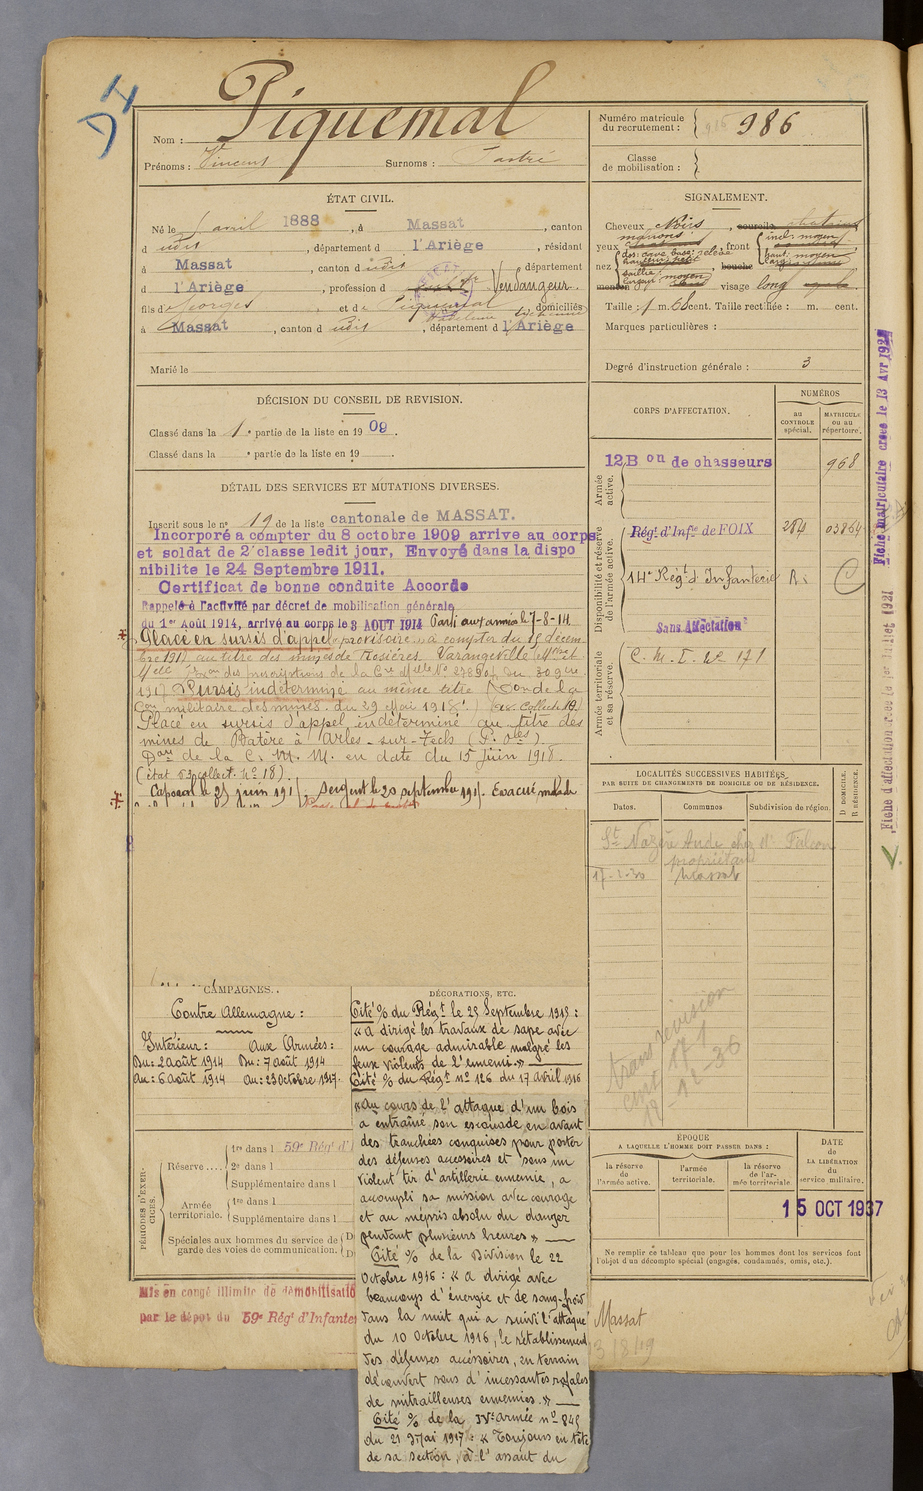 94
Nom : Piquemal
Prénoms : Vincent Surnoms :
Numéro matricule du recrutement : 986
Classe de mobilisation :
ÉTAT CIVIL.
Né le 1 avril 1888, à Massat, canton
d udit, département d l'Ariège, résidant
à Massat, canton d udit, département
d l'Ariège, profession d Vendangeur.
fils d Georges et d Piquemal domiciliés
à Massat, canton d udit, département d l'Ariège
Marié le
SIGNALEMENT.
Cheveux Noirs, sourcils
yeux marrons, front incl: moyen
haut: moyen
nez dos: cave, base: relevé
hauteur: petit
saillie:
largeur: moyen
bouche
menton visage long
Taille : 1 m. 68 cent. Taille rectifiée : m. cent.
Marques particulières :
Degré d'instruction générale : 3
DÉCISION DU CONSEIL DE REVISION.
Classé dans la 1e partie de la liste en 1909.
Classé dans la e partie de la liste en 19 .
DÉTAIL DES SERVICES ET MUTATIONS DIVERSES.
Inscrit sous le n° 19 de la liste cantonale de MASSAT.
Incorporé a compter du 8 octobre 1909 arrive au corps
et soldat de 2e classe ledit jour, Envoyé dans la dispo
nibilite le 24 Septembre 1911.
Certificat de bonne conduite Accorde
Rappelé à l'activité par décret de mobilisation générale
du 1er Août 1914, arrivé au corps le 3 AOUT 1914 Parti aux armées le 7-8-14
Placé en sursis d'appel "provisoire" à compter du 15 décem-
bre 1917 au titre des mines de Rosières Varangeville Mthe et
1917 Sursis indéterminé au même titre
Con militaire des mines. du 29 Mai 1918.
Placé en sursis d'appel indéterminé au titre des
mines de Batère à Arles-sur-Tech (P. Oles).
Don de la C. M. M. en date du 15 Juin 1918.
(état 53 collect. N° 18).
Caporal le 25 juin 191 Sergent le 20 septembre 191 . Evacué malade
CORPS D'AFFECTATION.
NUMÉROS
au contrôle spécial.
MATRICULE ou au répertoire.
Armée active.
12 Bon de chasseurs 968
Disponibilité et réserve de l'armée active.
Régt d'Infie de FOIX 284 03864
14e Régt d'Infanterie
Sans Affectation
Armée territoriale et sa réserve.
C. M. I. N° 171
LOCALITÉS SUCCESSIVES HABITÉES
PAR SUITE DE CHANGEMENTS DE DOMICILE OU DE RÉSIDENCE.
Dates. Communes. Subdivision de région. D DOMICILE. R RÉSIDENCE.
St Nazaire Aude chez Mr Falcon
propriétaire
17-1-30 Massat
trans révision
cmi 171
18-12-36
CAMPAGNES.
Contre Allemagne :
Intérieur : Aux Armées :
Du : 2 août 1914 Du : 7 août 1914
Au : 6 août 1914 Au : 23 Octobre 1917.
DÉCORATIONS, ETC.
Cité % du Régt le 25 Septembre 1915 :
« A dirigé les travaux de sape avec
un courage admirable malgré les
feux violents de l'ennemi. »
Cité % du Régt N° 126 du 17 avril 1916
« Au cours de l'attaque d'un bois
a entraîné son escouade en avant
des tranchées conquises pour porter
des défenses accessoires et sous un
violent tir d'artillerie ennemie, a
accompli sa mission avec courage
et au mépris absolu du danger
pendant plusieurs heures »
Cité % de la Division le 22
Octobre 1916 : « A dirigé avec
beaucoup d'énergie et de sang-froid
dans la nuit qui a suivi l'attaque
du 10 Octobre 1916, le rétablissement
des défenses accessoires, en terrain
découvert sous d'incessantes rafales
de mitrailleuses ennemies. »
Cité % de la IVe armée N° 845
du 21 Mai 1917 : « Toujours en tête
de sa section, à l'assaut du
PÉRIODES D'EXERCICES.
Réserve.... 1re dans l 59e Régt d'I
2e dans l
Supplémentaire dans l
Armée territoriale. 1re dans l
Supplémentaire dans l
Spéciales aux hommes du service de garde des voies de communication.
Mis en congé illimité de démobilisatio
par le dépôt du 59e Régt d'Infante
Massat
13/8/19
ÉPOQUE
A LAQUELLE L'HOMME DOIT PASSER DANS :
la réserve de l'armée active.
l'armée territoriale.
la réserve de l'armée territoriale.
DATE DE LA LIBÉRATION du service militaire.
15 OCT 1937
Ne remplir ce tableau que pour les hommes dont les services font
l'objet d'un décompte spécial (engagés, condamnés, omis, etc.).
Fiche matriculaire créée le 13 Avr 192
Fiche d'affectation créée le 1er juillet 1921